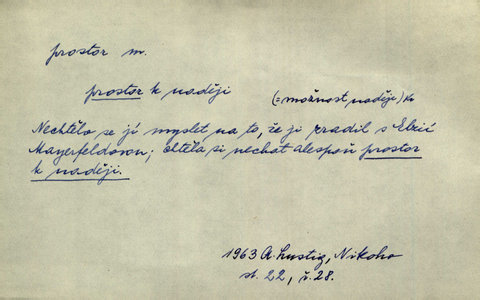 prostor m.
prostor k naději
(= možnost naděje) Ko
Nechtělo se jí myslet na to, že ji zradil s Elzič
Mayerfeldovou; chtěla si nechat alespoň prostor
k naději.
1963 A. Lustig, Nikoho
st. 22, ř. 28.